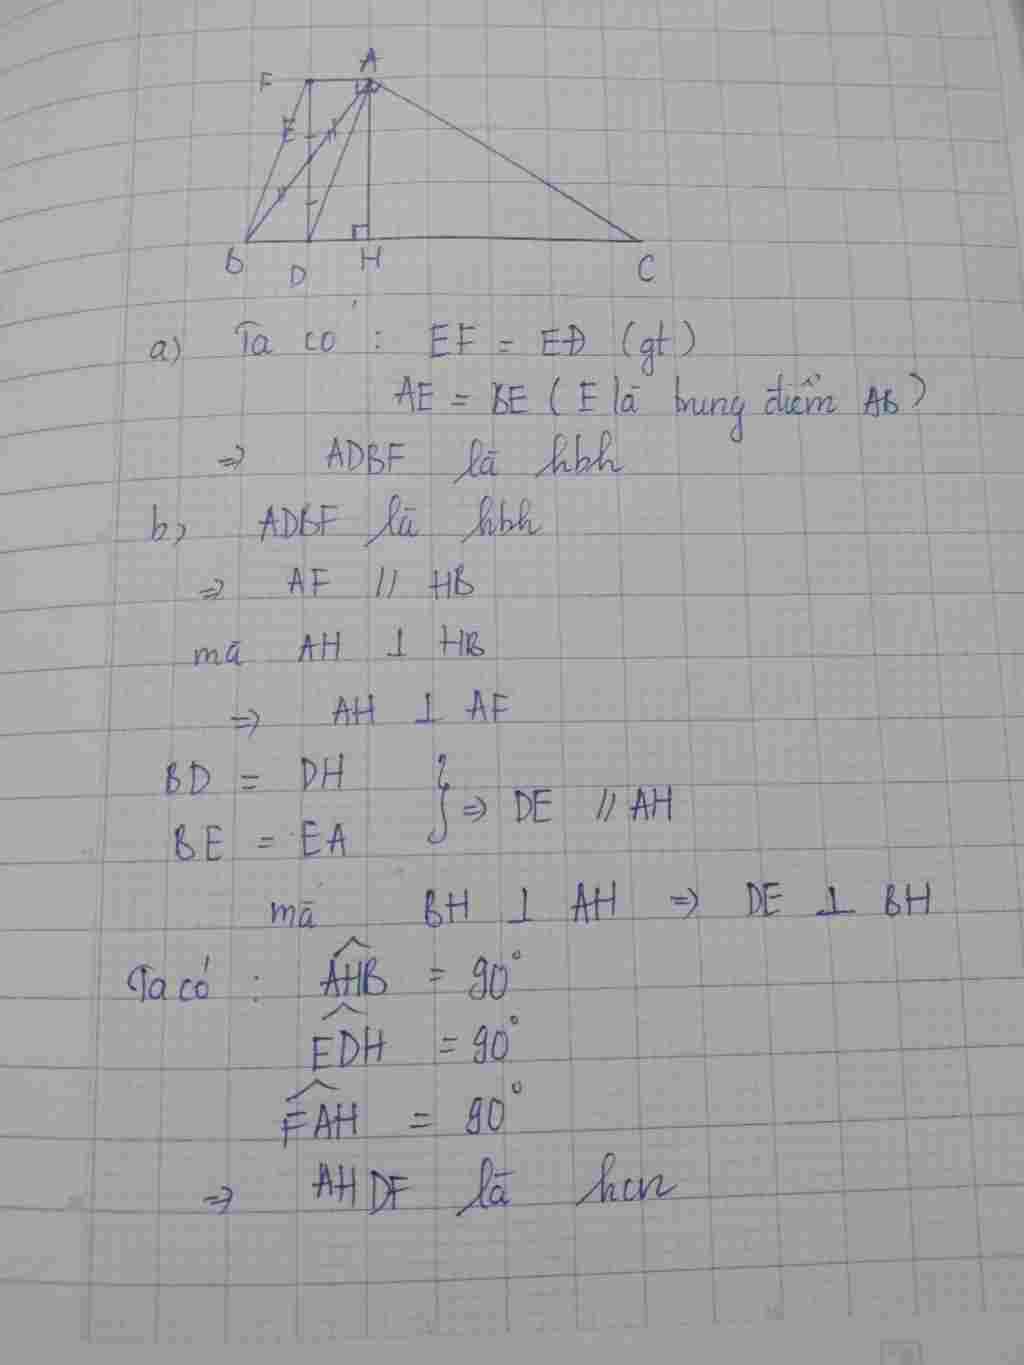 A
F
E
B
D
H
C
a) Ta có : EF = ED (gt)
AE = BE ( E là trung điểm AB )
⇒ ADBF là hbh
b) ADBF là hbh
⇒ AF // HB
mà AH ⊥ HB
⇒ AH ⊥ AF
BD = DH
BE = EA } ⇒ DE // AH
mà BH ⊥ AH ⇒ DE ⊥ BH
Ta có : \widehat{AHB} = 90°
\widehat{EDH} = 90°
\widehat{FAH} = 90°
⇒ AHDF là hcn